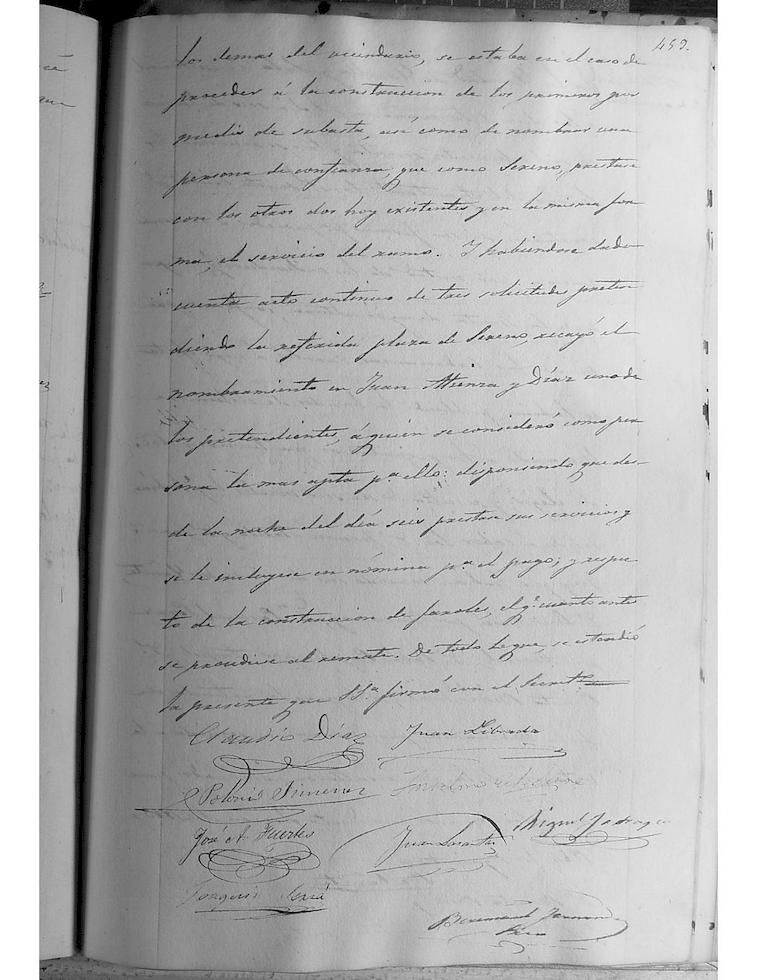 459.
los demas del vecindario, se estaba en el caso de
proceder á la construccion de los primeros por
medio de subasta, así como de nombrar una
persona de confianza, que como Sereno, prestase
con los otros dos hoy existentes y en la misma for
ma, el servicio del ramo. Y habiendose dado
cuenta acto continuo de tres solicitudes preten
diendo la referida plaza de Sereno, recayó el
nombramiento en Juan Atienza y Díaz uno de
los pretendientes, á quien se consideró como per
sona la mas apta pª ello: disponiendo que des-
de la noche del día seis prestase sus servicios y
se le incluyese en nómina pª el pago; y respec
to de la construccion de faroles, el qe cuanto antes
se procediese al remate. De todo lo que, se estendió
la presente que SSª firmó con el Secretº
Claudio Díaz Juan Librada
Polonio Simenez
José A. Fuertes Juan Miguel
Joaquin